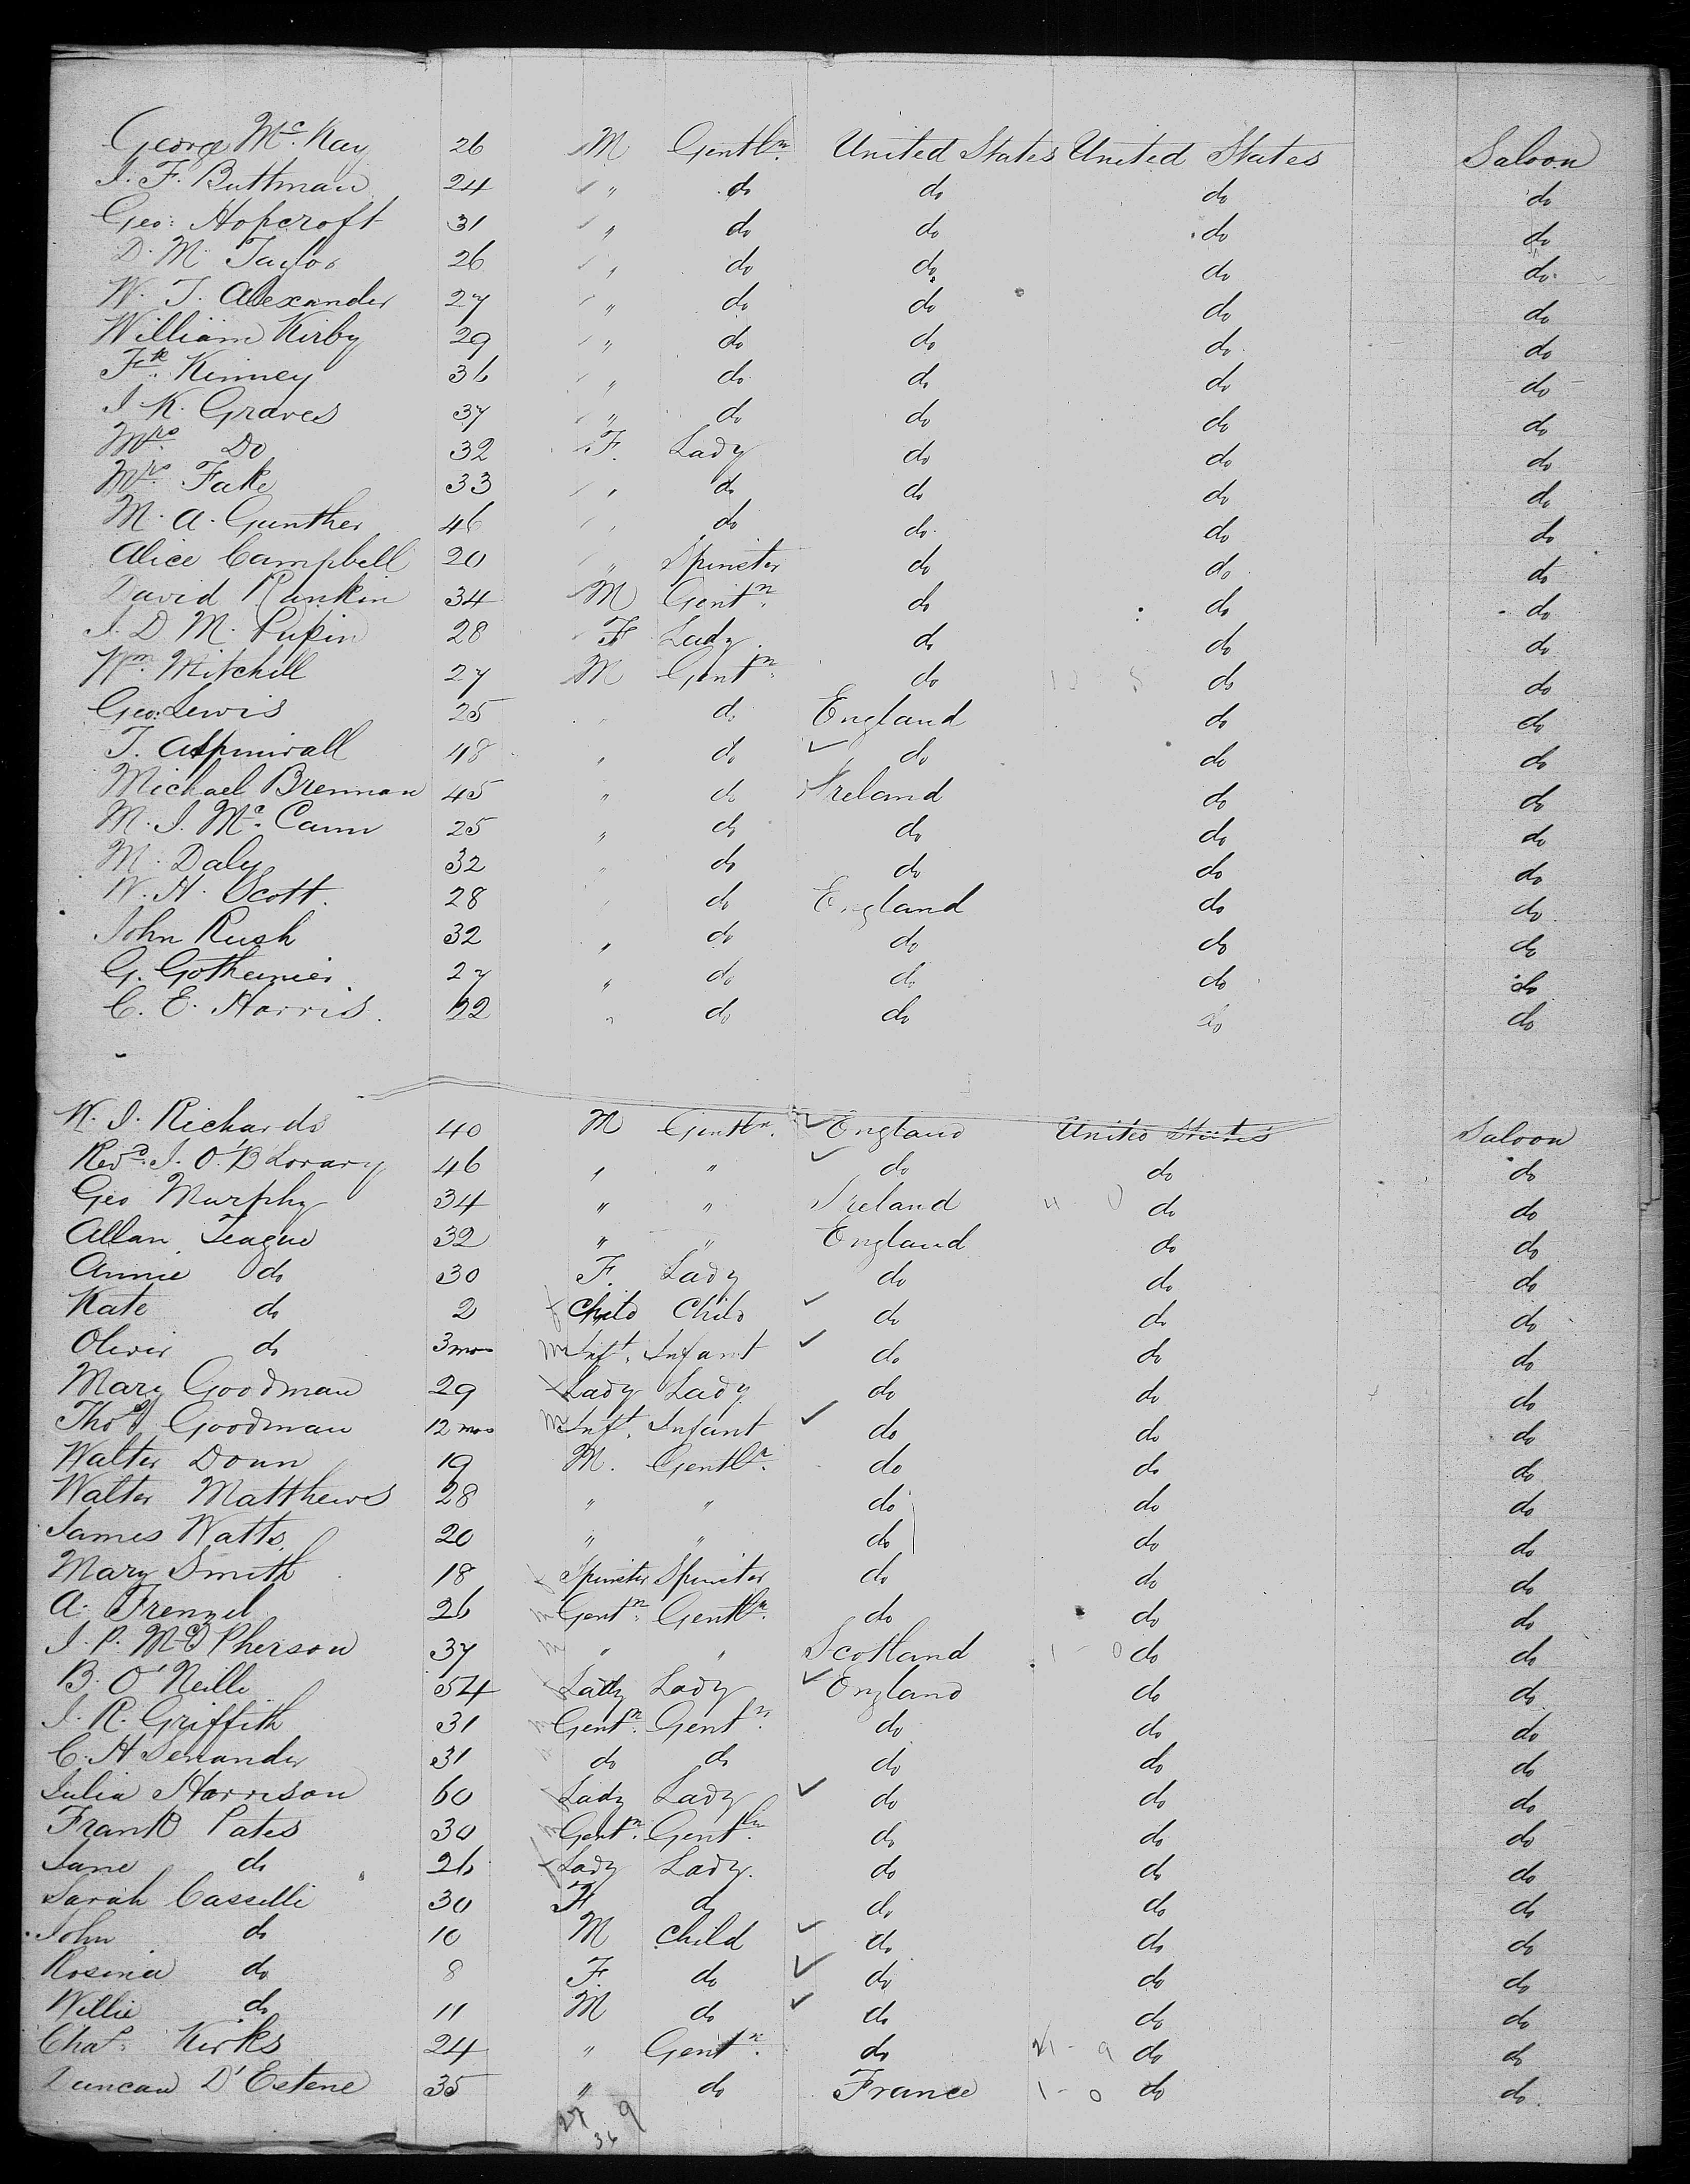 George Mc. Kay 26 M Gentln. United States United States Saloon
J. F. Buttman 24 " do do do do
Geo: Hopcroft 31 " do do do do
D. M. Taylor 26 " do do do do
W. T. Alexander 27 " do do do do
William Kirby 29 " do do do do
Fk. Kinney 36 " do do do do
J. K. Graves 37 " do do do do
Mrs. Do 32 F. Lady do do do
Mrs. Fake 33 " do do do do
M. A. Gunther 46 " do do do do
Alice Campbell 20 " Spinster do do do
David Rankin 34 M Gentn. do do do
J. D M. Pupin 28 F Lady do do do
Wm. Mitchell 27 M Gentn. do do do
Geo: Lewis 25 " do England do do
T. Aspinwall 48 " do do do do
Michael Brennan 45 " do Ireland do do
M. J. Mc. Cann 25 " do do do do
M. Daly 32 " do do do do
W. H. Scott. 28 " do England do do
John Rush 32 " do do do do
G. 27 " do do do do
C. E. Harris. 22 " do do do do
W. J. Richards 40 M Gentln. England United States Saloon
Revd. J. O'B 46 " " do do do
Geo Murphy 34 " " Ireland do do
Allan Teague 32 " " England do do
Annie do 30 F. Lady do do do
Kate do 2 f Child Child do do do
Oliver do 3 mos m Inft. Infant do do do
Mary Goodman 29 f Lady Lady do do do
Thos. Goodman 12 mos m Inft. Infant do do do
Walter Donn 19 M. Gentln. do do do
Walter Matthews 28 " " do do do
James Watts. 20 " " do do do
Mary Smith 18 f Spinster Spinster do do do
A. Frenzel 26 m Gentn. Gentln. do do do
J. P. McPherson 37 m " " Scotland 1 - 0 do do
B. O'Neille 54 f Lady Lady England do do
J. R. Griffith 31 m Gentn. Gentn. do do do
C. H Senander 31 " do do do do do
Julia Harrison 60 f Lady Lady do do do
Frank Pates 30 m Gentn. Gentln. do do do
Jane do 26 f Lady Lady. do do do
Sarah Casselli 30 F do do do do
John do 10 M Child do do do
Rosina do 8 F. do do do do
Willie do 11 M do do do do
Chas. Kirks 24 " Gentn. do 21 - 9 do do
Duncan D'Estene 35 " do France 1 - 0 do do
27 9
36